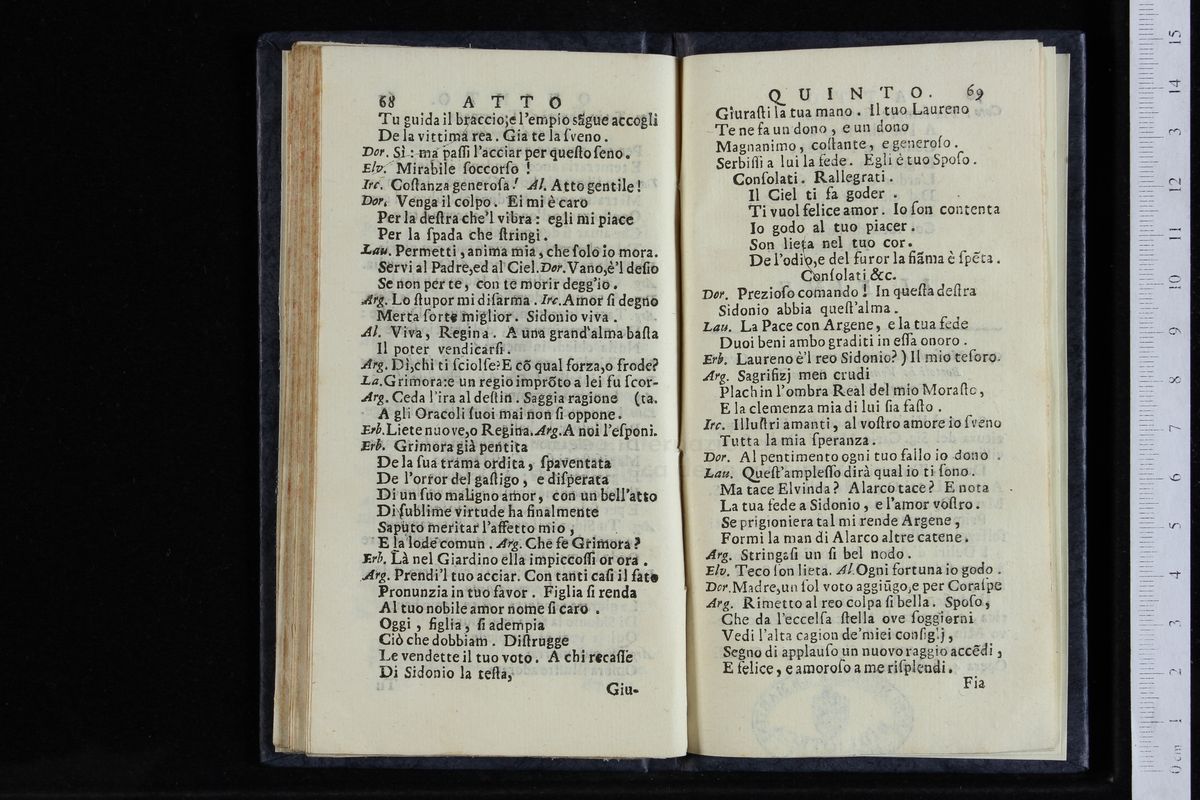 68 ATTO
Tu guida il braccio;e l'empio sãgue accogli
De la vittima rea. Gia te la ſveno.
Dor. Sì: ma paſſi l'acciar per queſto ſeno.
Elv. Mirabile ſoccorſo!
Irc. Coſtanza generoſa! Al. Atto gentile!
Dor. Venga il colpo. Ei mi è caro
Per la deſtra che'l vibra: egli mi piace
Per la ſpada che ſtringi.
Lau. Permetti, anima mia, che ſolo io mora.
Servi al Padre,ed al Ciel. Dor. Vano,è'l deſio
Se non per te, con te morir degg'io.
Arg. Lo ſtupor mi diſarma. Irc. Amor ſi degno
Merta ſorte miglior. Sidonio viva.
Al. Viva, Regina. A una grand'alma baſta
Il poter vendicarſi.
Arg. Di,chi ti ſciolſe?E cõ qual forza,o frode?
La. Grimora:e un regio imprõto a lei fu ſcor-
Arg. Ceda l'ira al deſtin. Saggia ragione (ta.
A gli Oracoli ſuoi mai non ſi oppone.
Erb. Liete nuove,o Regina. Arg. A noi l'eſponi.
Erb. Grimora già pentita
De la ſua trama ordita, ſpaventata
De l'orror del gaſtigo, e diſperata
Di un ſuo maligno amor, con un bell'atto
Di ſublime virtude ha finalmente
Saputo meritar l'affetto mio,
E la lode comun. Arg. Che fe Grimora?
Erb. Là nel Giardino ella impiccoſſi or ora.
Arg. Prendi'l tuo acciar. Con tanti caſi il fato
Pronunzia in tuo favor. Figlia ſi renda
Al tuo nobile amor nome ſi caro.
Oggi, figlia, ſi adempia
Ciò che dobbiam. Diſtrugge
Le vendette il tuo voto. A chi recaſſe
Di Sidonio la teſta,
Giu-
QUINTO. 69
Giuraſti la tua mano. Il tuo Laureno
Te ne fa un dono, e un dono
Magnanimo, coſtante, e generoſo.
Serbiſſi a lui la fede. Egli è tuo Spoſo.
Conſolati. Rallegrati.
Il Ciel ti fa goder.
Ti vuol felice amor. Io ſon contenta
Io godo al tuo piacer.
Son lieta nel tuo cor.
De l'odio,e del furor la fiãma è ſpẽta.
Conſolati &c.
Dor. Prezioſo comando! In queſta deſtra
Sidonio abbia queſt'alma.
Lau. La Pace con Argene, e la tua fede
Duoi beni ambo graditi in eſſa onoro.
Erb. Laureno è'l reo Sidonio?) Il mio teſoro.
Arg. Sagrifizj men crudi
Plachin l'ombra Real del mio Moraſto,
E la clemenza mia di lui ſia faſto.
Irc. Illuſtri amanti, al voſtro amore io ſveno
Tutta la mia ſperanza.
Dor. Al pentimento ogni tuo fallo io dono.
Lau. Queſt'ampleſſo dirà qual io ti ſono.
Ma tace Elvinda? Alarco tace? E nota
La tua fede a Sidonio, e l'amor voſtro.
Se prigioniera tal mi rende Argene,
Formi la man di Alarco altre catene.
Arg. Stringaſi un ſi bel nodo.
Elv. Teco ſon lieta. Al. Ogni fortuna io godo.
Dor. Madre,un ſol voto aggiũgo,e per Coraſpe
Arg. Rimetto al reo colpa ſi bella. Spoſo,
Che da l'eccelſa ſtella ove ſoggiorni
Vedi l'alta cagion de'miei conſiglj,
Segno di applauſo un nuovo raggio accẽdi,
E felice, e amoroſo a me riſplendi.
Fia